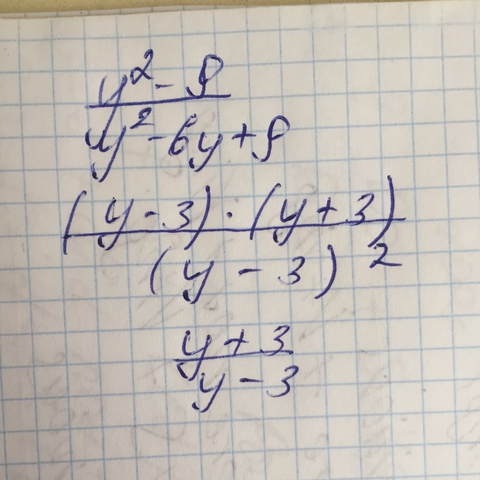 y² - 9
y² - 6y + 9
(y - 3) · (y + 3)
(y - 3)²
y + 3
y - 3